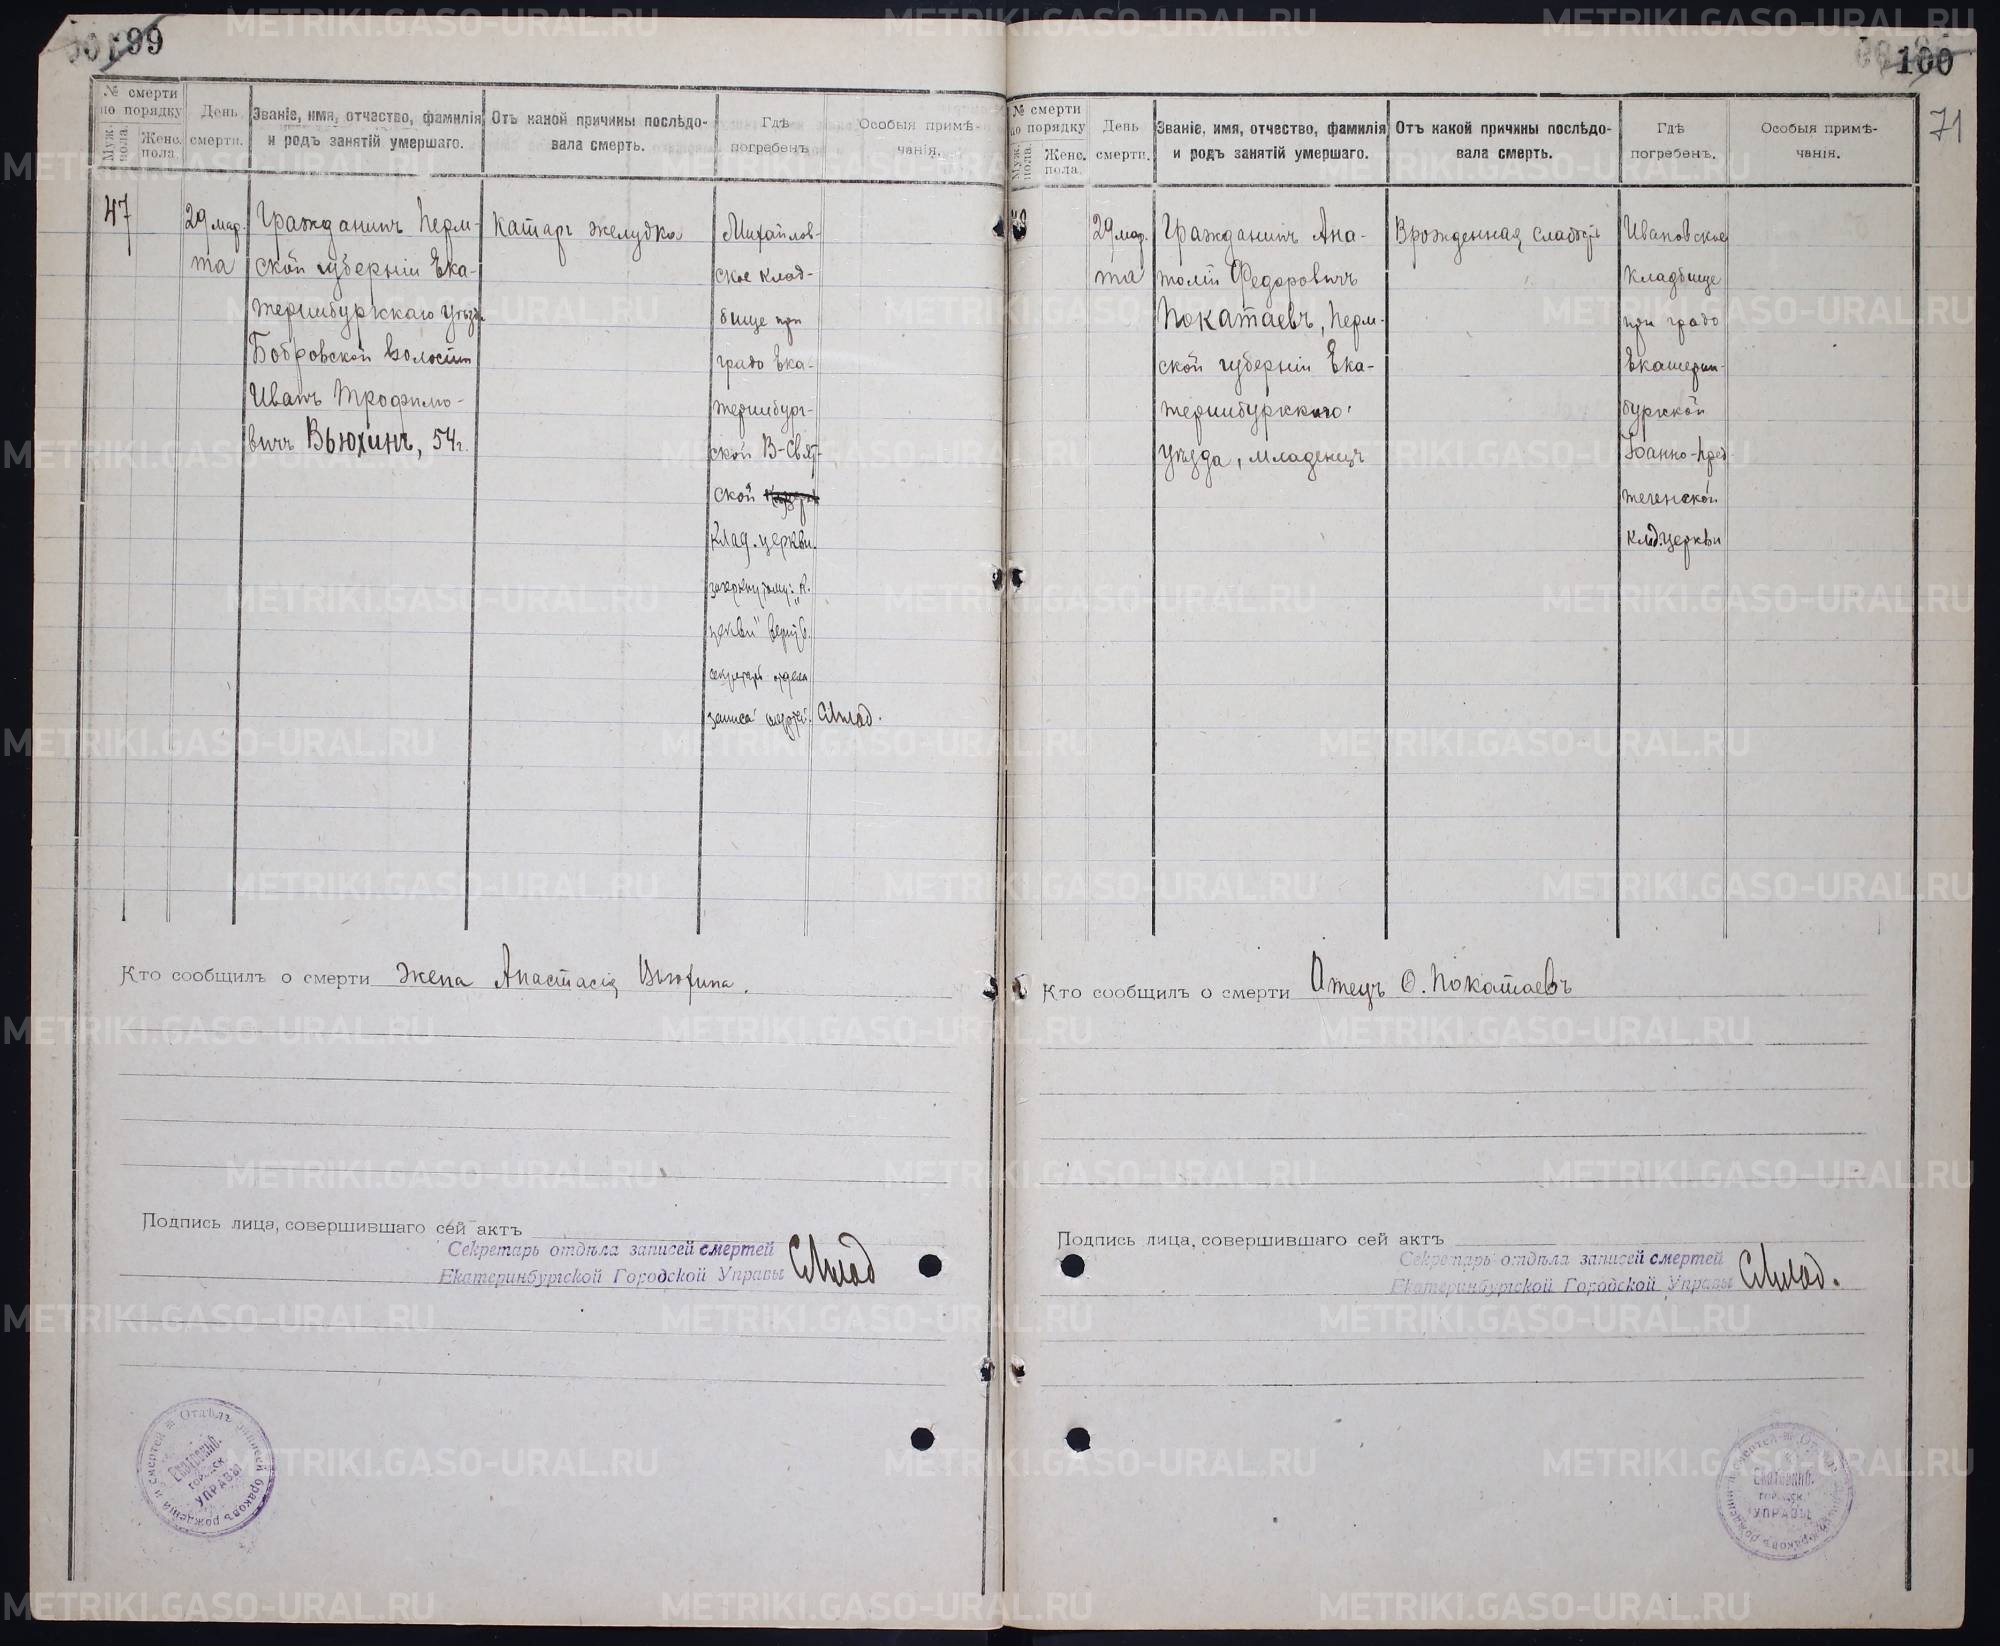 99
№ смерти
по порядку
Муж. пола.
Женс. пола.
День смерти.
Званіе, имя, отчество, фамилія
и родъ занятій умершаго.
Отъ какой причины послѣдо-
вала смерть.
Гдѣ
погребенъ
Особыя примѣ-
чанія.
47
29 мар-
та
Гражданинъ Перм-
ской губерніи Ека-
теринбургскаго уѣзда
Бобровской волости
Иванъ Трофимо-
вичъ Вьюхинъ, 54 г.
Катарг желудка
Михайлов-
ское клад-
бище при
градо Ека-
теринбург-
ской В-Свят-
ской
Клад. церкви.
зачеркнутому: „К.
церкви" вѣрить.
секретарь отдела
записей смертей. СМлад.
Кто сообщилъ о смерти жена Анастасія Вьюхина.
Подпись лица, совершившаго сей актъ
Секретарь отдѣла записей смертей
Екатеринбургской Городской Управы СМлад
Отдѣлъ записей браковъ рожденій и смертей
Екатеринб.
городск.
УПРАВЫ
100
71
№ смерти
по порядку
Муж. пола.
Женс. пола.
День смерти.
Званіе, имя, отчество, фамилія
и родъ занятій умершаго.
Отъ какой причины послѣдо-
вала смерть.
Гдѣ
погребенъ.
Особыя примѣ-
чанія.
29 мар-
та
Гражданинъ Ана-
толій Федоровичъ
Покатаевъ, Перм-
ской губерніи Ека-
теринбургскаго
уѣзда, младенецъ
Врожденная слабость
Ивановское
кладбище
при градо
Екатерин-
бургской
Іоанно-Пред-
теченской
Клад. церкви
Кто сообщилъ о смерти Отецъ Ѳ. Покатаевъ
Подпись лица, совершившаго сей актъ
Секретарь отдѣла записей смертей
Екатеринбургской Городской Управы СМлад.
Екатеринб.
городск.
УПРАВЫ
METRIKI.GASO-URAL.RU